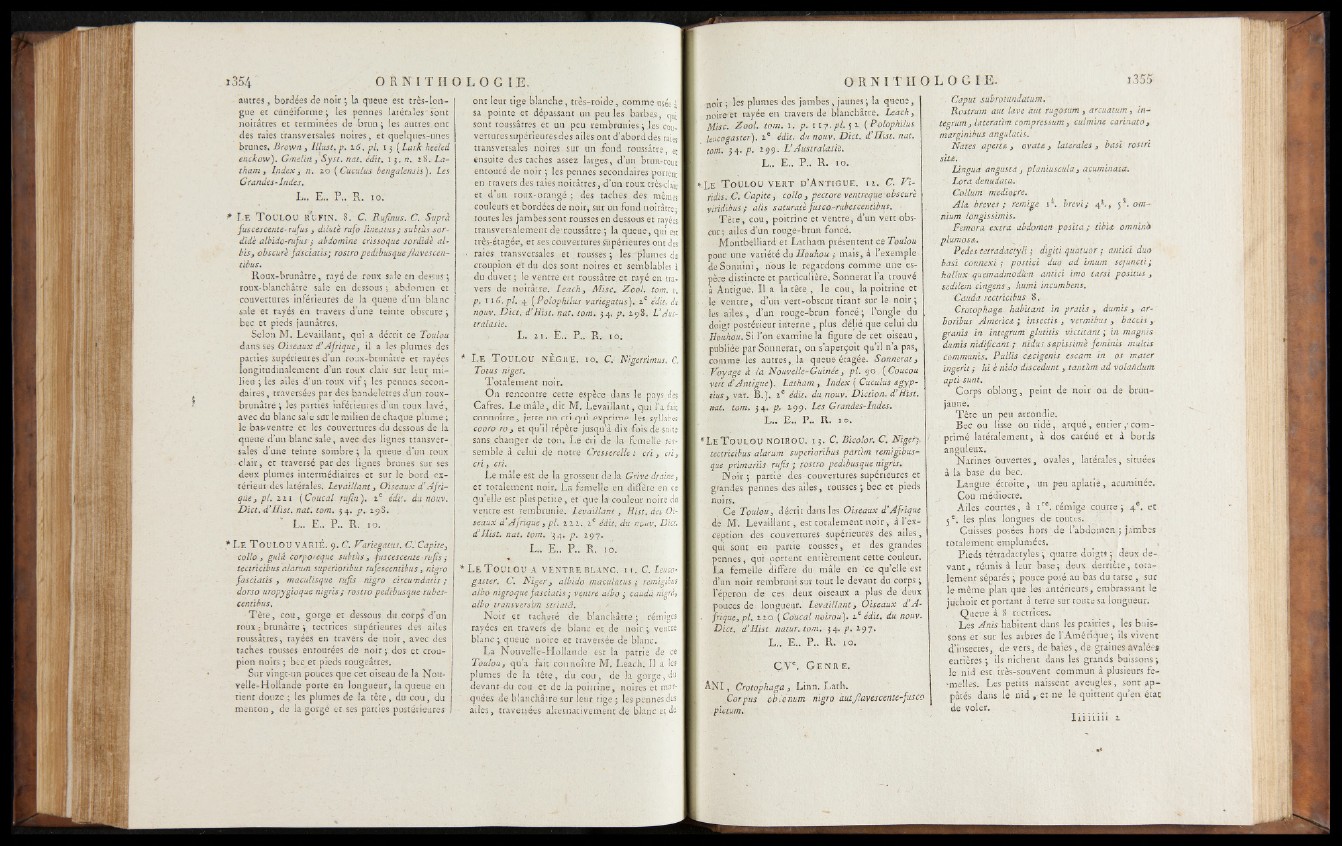 1354 ORNITHOLOGIE.
autres, bordées de noir ; la queue est très-lon-
gue et cunéiforme ; les pennes latérales sont
noirâtres et terminées de brun ; les autres ont
des raies transversales noires, et quelques-unes
brunes. Brown, Illust. p. 26. pl. 13 (Lark heeled
enckow). Gmelin, Syst. nat. édit. 13. n. 28. La-
tham, Index, n. 20 (Cuculus bengalensis). Les
Grandes-Indes.
L.. E.. P.. R. 10.
* LE TOULOU RUFIN. 8. C. Rufinus. C. Suprà
fuscescente-rufus, dilutè rufo lineatus ; subtùs sor-
didè albido-rufus ; abdomine crissoque sordidè al-
bis, obscurè fasciatis ; rostro pedibusque flavescen-
tibus.
Roux-brunâtre, rayé de roux sale en dessus ;
roux-blanchâtre sale en dessous ; abdomen et
couvertures inférieures de la queue d'un blanc
sale et rayés en travers d'une teinte obscure ;
bec et pieds jaunâtres.
Selon M. Levaillant, qui a décrit ce Toulou
dans ses Oiseaux d'Afrique, il a les plumes des
parties supérieures d'un roux-brunâtre et rayées
longitudinalement d'un roux clair sur leur mi-
lieu ; les ailes d'un roux vif ; les pennes secon-
daires, traversées par des bandelettes d'un roux-
brunâtre ; les parties inférieures d'un roux lavé,
avec du blanc sale sur le milieu de chaque plume ;
le bas-ventre et les couvertures du dessous de la
queue d'un blanc sale, avec des lignes transver-
sales d'une teinte sombre ; la queue d'un roux
clair, et traversé par des lignes brunes sur ses
deux plumes intermédiaires et sur le bord ex-
térieur des latérales. Levaillant, Oiseaux d'Afri-
que, pl. 221 (Coucal rufin). 2e édit. du nouv.
Dict. d'Hist. nat. tom. 34. p. 298.
L.. E.. P.. R. 10.
* LE TOULOU VARIÉ. 9. C. Variegatus. C. Capite,
collo, gulâ corporeque subtùs, fuscescente rufis ;
tectricibus alarum superioribus rufescentibus, nigro
fasciatis, maculisque rufis nigro circumdatis ;
dorso uropygioque nigris ; rostro pedibusque rubes-
centibus.
Tête, cou, gorge et dessous du corps d'un
roux-brunâtre ; tectrices supérieures des ailes
roussâtres, rayées en travers de noir, avec des
taches rousses entourées de noir ; dos et crou-
pion noirs ; bec et pieds rougeâtres.
Sur vingt-un pouces que cet oiseau de la Nou-
velle-Hollande porte en longueur, la queue en
tient douze ; les plumes de la tête, du cou, du
menton, de la gorge et ses parties postérieures
ont leur tige blanche, très-roide, comme usée à
sa pointe et dépassant un peu les barbes, qui
sont roussâtres et un peu rembrunies ; les cou-
vertures supérieures des ailes ont d'abord des raies
transversales noires sur un fond roussâtre, et
ensuite des taches assez larges, d'un brun-roux
entouré de noir ; les pennes secondaires portent
en travers des raies noirâtres, d'un roux très-clair
et d'un roux-orangé ; des taches des mêmes
couleurs et bordées de noir, sur un fond noirâtre ;
toutes les jambes sont rousses en dessous et rayées
transversalement de roussâtre ; la queue, qui est
très-étagée, et ses couvertures supérieures ont des
raies transversales et rousses ; les plumes du
croupion et du dos sont noires et semblables à
du duvet ; le ventre est roussâtre et rayé en tra-
vers de noirâtre. Leach, Misc. Zool. tom. 1.
p. 116. pl. 4 (Polophilus variegatus). 2e édit. du
nouv. Dict. d'Hist. nat. tom. 34. p. 298. L'Aus-
tralasie.
L. 21. E.. P.. R. 10.
* LE TOULOU NÈGRE. 10. C. Nigerrimus. C.
Totus niger.
Totalement noir.
On rencontre cette espèce dans le pays des
Cafres. Le mâle, dit M. Levaillant, qui l'a fait
connoître, jette un cri qui exprime les syllabes
cooro ro, et qu'il répète jusqu'à dix fois de suite
sans changer de ton. Le cri de la femelle res-
semble à celui de notre Cresserelle : cri, cri,
cri, cri.
Le mâle est de la grosseur de la Grive draine,
et totalement noir. La femelle en diffère en ce
qu'elle est plus petite, et que la couleur noire du
ventre est rembrunie. Levaillant, Hist. des Oi-
seaux d'Afrique, pl. 222. 2e édit. du nouv. Dict.
d'Hist. nat. tom. 34. p. 297.
L.. E.. P.. R. 10.
* LE TOULOU A VENTRE BLANC. 11. C. Leuco-
gaster. C. Niger, albido maculatus ; remigibus
albo nigroque fasciatis ; ventre albo ; caudâ nigrâ,
albo transversìm striatâ.
Noir et tacheté de blanchâtre ; rémiges
rayées en travers de blanc et de noir ; ventre
blanc ; queue noire et traversée de blanc.
La Nouvelle-Hollande est la patrie de ce
Toulou, qu'a fait connoître M. Leach. Il a les
plumes de la tête, du cou, de la gorge, du
devant du cou et de la poitrine, noires et mar-
quées de blanchâtre sur leur tige ; les pennes des
ailes, traversées alternativement de blanc et de
ORNITHOLOGIE. 1355
noir ; les plumes des jambes, jaunes ; la queue,
noire et rayée en travers de blanchâtre. Leach,
Misc. Zool. tom. 1. p. 117. pl. 52 (Polophilus
leucogaster). 2e édit. du nouv. Dict. d'Hist. nat.
tom. 34. p. 299. L'Australasie.
L.. E.. P.. R. 10.
* LE TOULOU VERT D'ANTIGUE. 12. C. Vi-
ridis. C. Capite, collo, pectore ventreque obscurè
viridibus ; alis saturatè fusco-rubescentibus.
Tête, cou, poitrine et ventre, d'un vert obs-
cur ; ailes d'un rouge-brun foncé.
Montbelliard et Latham présentent ce Toulou
pour une variété du Houhou ; mais, à l'exemple
de Sonnini, nous le regardons comme une es-
pèce distincte et particulière. Sonnerat l'a trouvé
à Antigue. Il a la tête, le cou, la poitrine et
le ventre, d'un vert-obscur tirant sur le noir ;
les ailes, d'un rouge-brun foncé ; l'ongle du
doigt postérieur interne, plus délié que celui du
Houhou. Si l'on examine la figure de cet oiseau,
publiée par Sonnerat, on s'aperçoit qu'il n'a pas,
comme les autres, la queue étagée. Sonnerat,
Voyage à la Nouvelle-Guinée, pl. 90 (Coucou
vert d'Antigue). Latham, Index (Cuculus ægyp-
tius, var. B.). 2e édit. du nouv. Diction. d'Hist.
nat. tom. 34. p. 299. Les Grandes-Indes.
L.. E.. P.. R. 10.
* LE TOULOU NOIROU. 13. C. Bicolor. C. Niger ;
tectricibus alarum superioribus partìm remigibus-
que primariis rufis ; rostro pedibusque nigris.
Noir ; partie des couvertures supérieures et
grandes pennes des ailes, rousses ; bec et pieds
noirs.
Ce Toulou, décrit dans les Oiseaux d'Afrique
de M. Levaillant, est totalement noir, à l'ex-
ception des couvertures supérieures des ailes,
qui sont en partie rousses, et des grandes
pennes, qui portent entièrement cette couleur.
La femelle diffère du mâle en ce qu'elle est
d'un noir rembruni sur tout le devant du corps ;
l'éperon de ces deux oiseaux a plus de deux
pouces de longueur. Levaillant, Oiseaux d'A-
frique, pl. 220 (Coucal noirou). 2e édit. du nouv.
Dict. d'Hist. natur. tom. 34. p. 297.
L.. E.. P.. R. 10.
CVe. GENRE.
ANI, Crotophaga, Linn. Lath.
Corpus oblongum nigro aut flavescente-fusco
pictum.
Caput subrotundatum.
Rostrum aut læve aut rugosum, arcuatum, in-
tegrum, lateratìm compressum, culmine carinato,
marginibus angulatis.
Nares apertæ, ovatæ, laterales, basi rostri
sitæ.
Lingua angusta, planiuscula, acuminata.
Lora denudata.
Collum mediocre.
Alæ breves ; remige 1â. brevi ; 4â., 5â. om-
nium longissimis.
Femora extra abdomen posita ; tibiæ omninò
plumosæ.
Pedes tetradactyli ; digiti quatuor ; antici duo
basi connexi ; postici duo ad imum sejuncti ;
hallux quemadmodùm antici imo tarsi positus,
sedilem cingens, humi incumbens.
Cauda rectricibus 8.
Crotophagæ habitant in pratis, dumis, ar-
boribus Americæ ; insectis, vermibus, baccis,
granis in integrum glutitis victitant ; in magnis
dumis nidificant ; nidus sæpissimè feminis multis
communis. Pullis cæcigenis escam in os mater
ingerit ; hi è nido discedunt, tantùm ad volandum
apti sunt.
Corps oblong, peint de noir ou de brun-
jaune.
Tête un peu arrondie.
Bec ou lisse ou ridé, arqué, entier, com-
primé latéralement, à dos caréné et à bords
anguleux.
Narines ouvertes, ovales, latérales, situées
à la base du bec.
Langue étroite, un peu aplatie, acuminée.
Cou médiocre.
Ailes courtes, à 1re. rémige courte ; 4e. et
5e. les plus longues de toutes.
Cuisses posées hors de l'abdomen ; jambes
totalement emplumées.
Pieds tétradactyles ; quatre doigts ; deux de-
vant, réunis à leur base ; deux derrière, tota-
lement séparés ; pouce posé au bas du tarse, sur
le même plan que les antérieurs, embrassant le
juchoir et portant à terre sur toute sa longueur.
Queue à 8 rectrices.
Les Anis habitent dans les prairies, les buis-
sons et sur les arbres de l'Amérique ; ils vivent
d'insectes, de vers, de baies, de graines avalées
entières ; ils nichent dans les grands buissons ;
le nid est très-souvent commun à plusieurs fe-
melles. Les petits naissent aveugles, sont ap-
pâtés dans le nid, et ne le quittent qu'en état
de voler.
Iiiiiiii 2